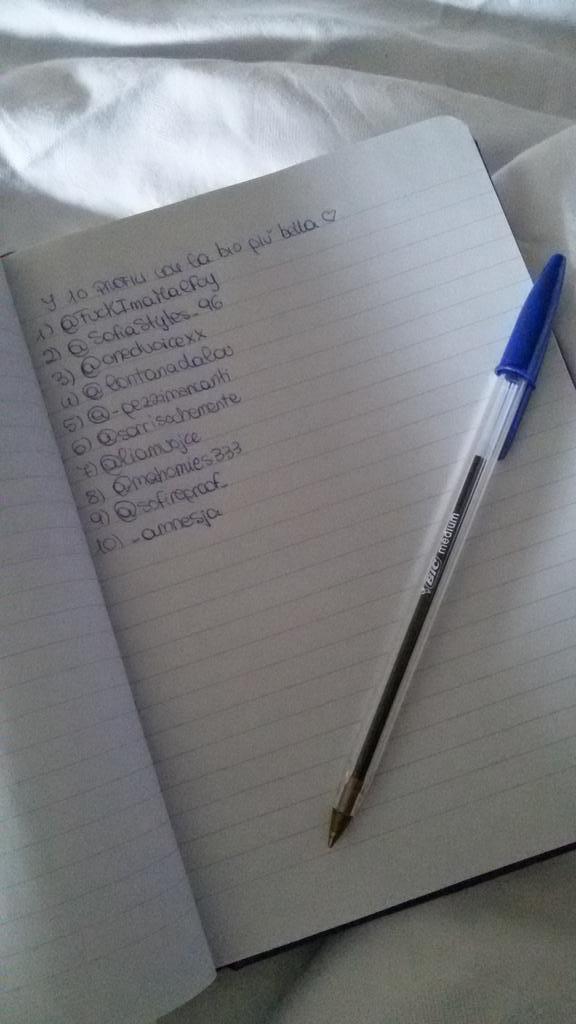 I 10 profili con la bio più bella ♡
1) @FuckImaMalfoy
2) @SofiaStyles_96
3) @onedvoicexx
4) @lontanadalou
5) @-pezzimancanti
6) @sorrisachemente
7) @liamvojce
8) @mahomies333
9) @sofireproof_
10) -amnesja
BIC medium